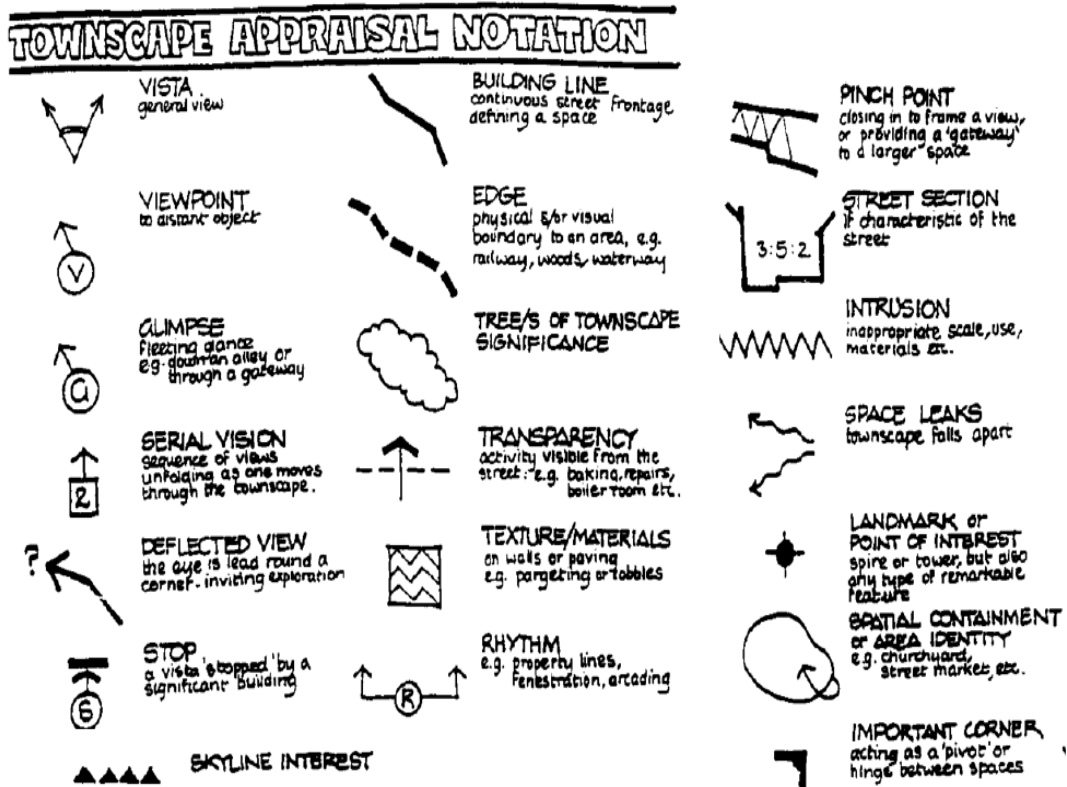 TOWNSCAPE APPRAISAL NOTATION
VISTA.
general view
VIEWPOINT
to distant object
V
GLIMPSE
fleeting glance
e.g. down an alley or
through a gateway
G
SERIAL VISION
sequence of views
unfolding as one moves
through the townscape.
2
?
DEFLECTED VIEW
the eye is lead round a
corner - inviting exploration
STOP
a vista 'stopped' by a
significant building
S
SKYLINE INTEREST
BUILDING LINE
continuous street frontage
defining a space
EDGE
physical &/or visual
boundary to an area, e.g.
railway, woods, waterway
TREE/S OF TOWNSCAPE
SIGNIFICANCE
TRANSPARENCY
activity visible from the
street: e.g. baking, repairs,
boiler room etc.
TEXTURE/MATERIALS
on walls or paving
e.g. pargeting or cobbles
RHYTHM
e.g. property lines,
fenestration, arcading
R
PINCH POINT
closing in to frame a view,
or providing a 'gateway'
to a larger space
STREET SECTION
if characteristic of the
street
3:5:2
INTRUSION
inappropriate scale, use,
materials etc.
SPACE LEAKS
townscape falls apart
LANDMARK or
POINT OF INTEREST
spire or tower, but also
any type of remarkable
feature
SPATIAL CONTAINMENT
or AREA IDENTITY
e.g. churchyard,
street market, etc.
IMPORTANT CORNER
acting as a 'pivot' or
hinge between spaces